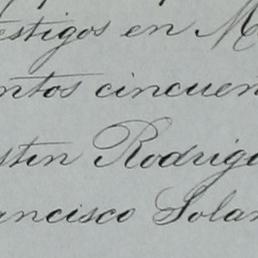 estigos en M
ntos cincuen
stin Rodrigu
ancisco Solan